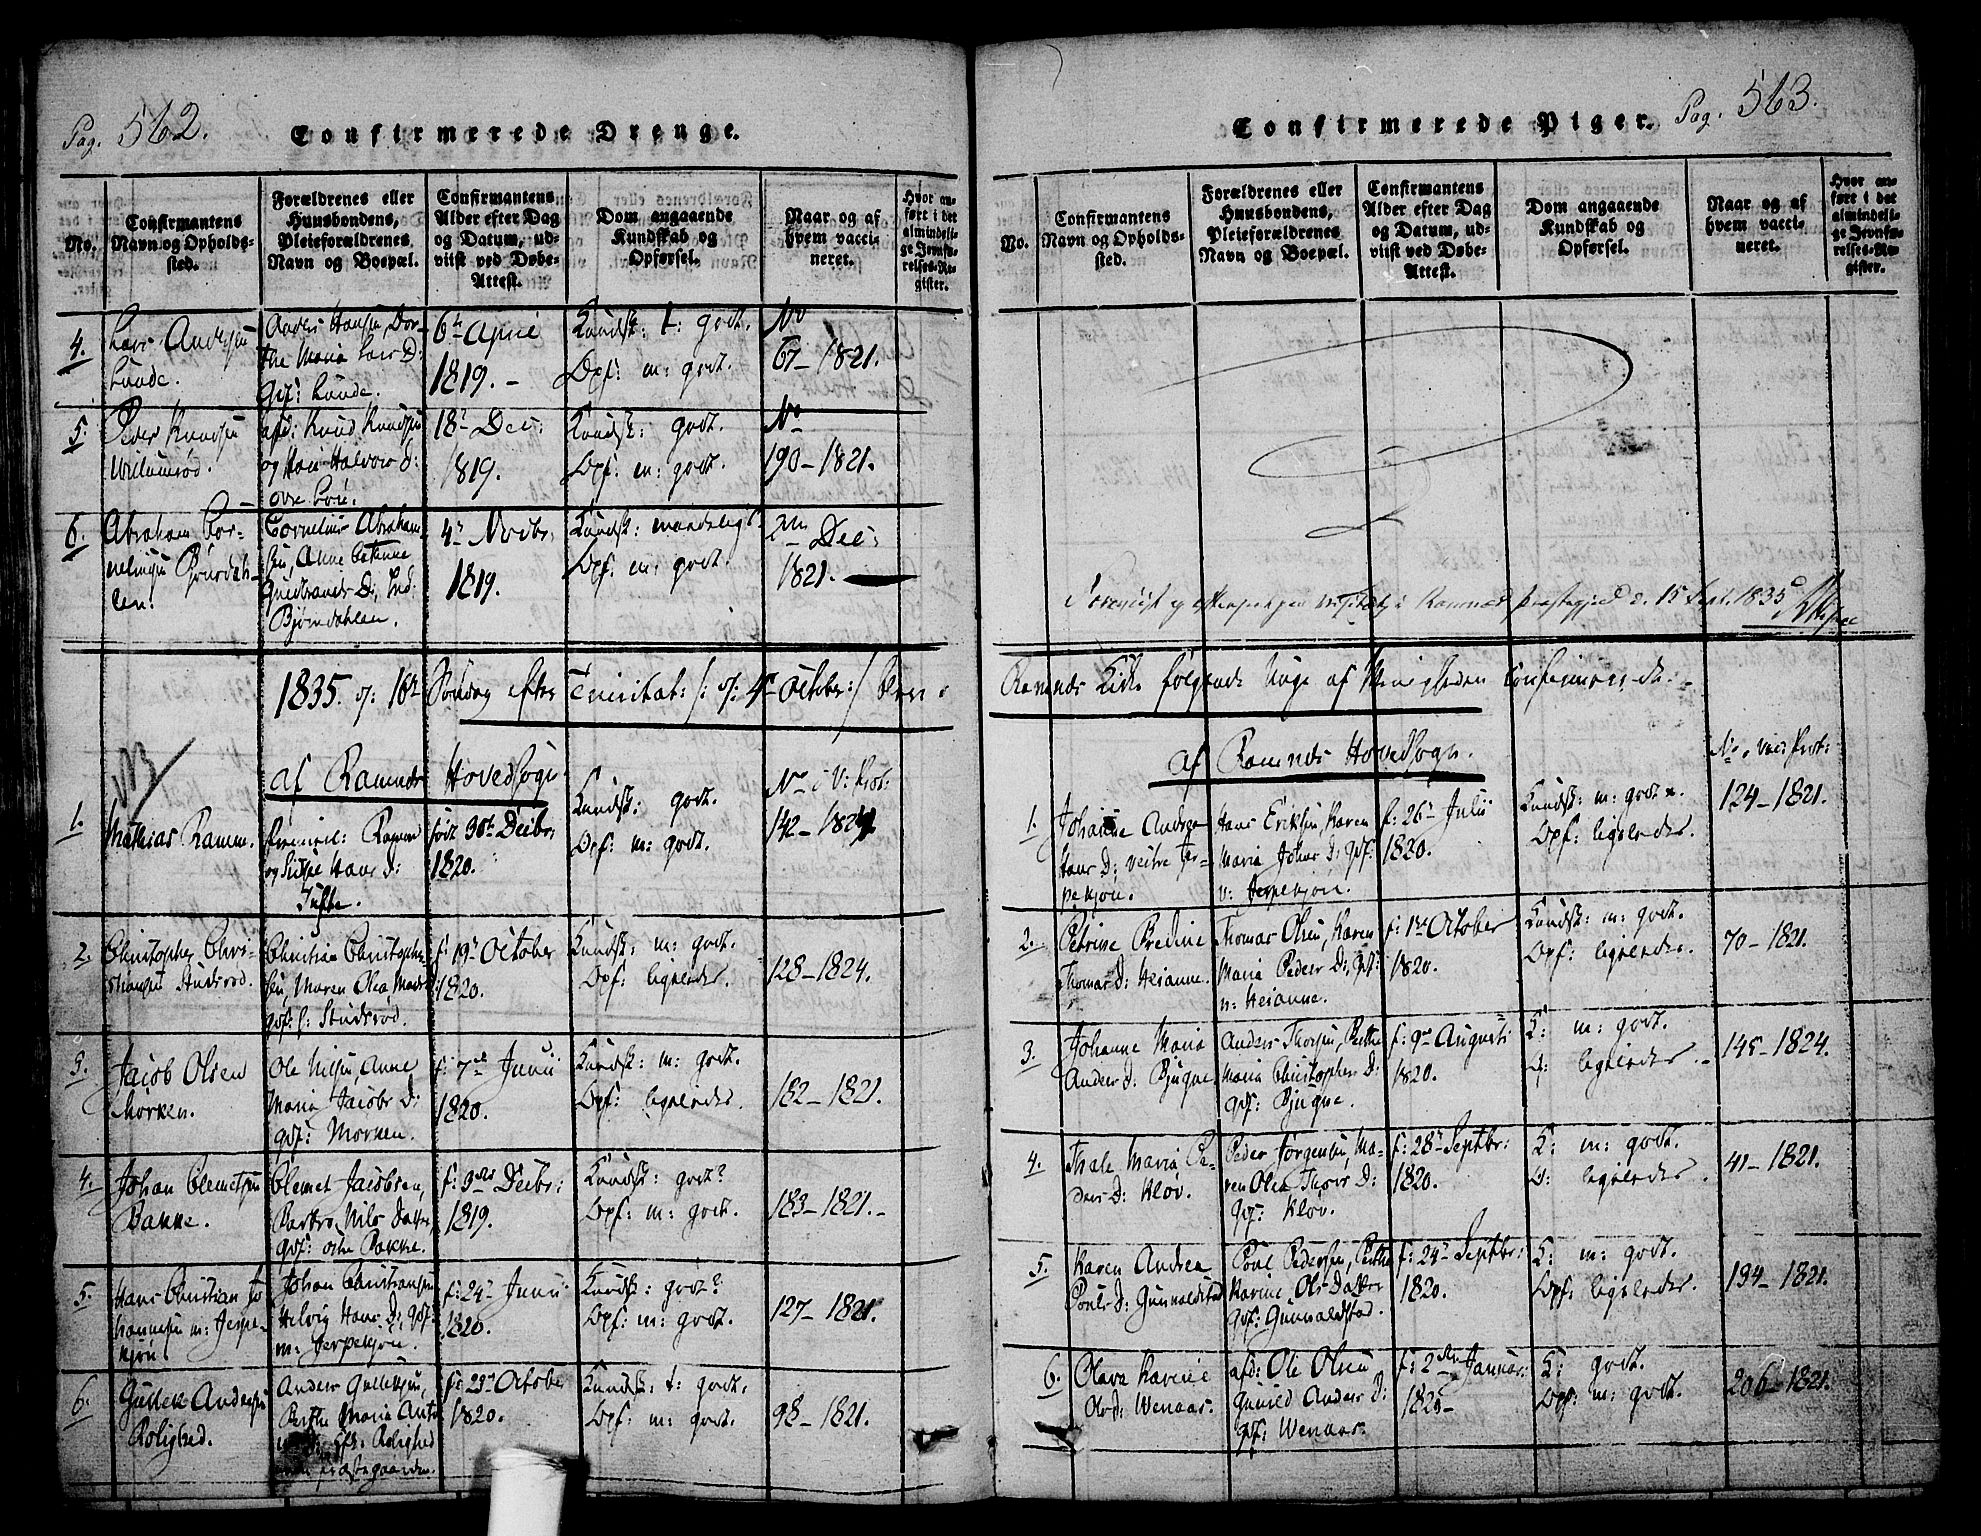 Pag. 562.
Confirmerede Drenge.
No.
Confirmantens
Navn og Opholds-
sted.
Forældrenes eller
Huusbondens,
Pleieforældrenes
Navn og Boepæl.
Confirmantens
Alder efter Dag
og Datum, ud-
viist ved Døbe-
Attest.
Dom angaaende
Kundskab og
Opførsel.
Naar og af
hvem vacci-
neret.
Hvor an-
ført i det
almindeli-
ge Jevnfø-
relses-Re-
gister.
4.
Lars Andersen
Lunde.
Anders Hansen, Dor-
the Maria Lars D:
Gpf: Lunde.
6te April
1819. -
Kundsk: t: godt.
Opf: m: godt.
No
67 - 1821.
5.
Peder Knudsen
afd: Knud Knudsen
og Halvors D:
øvre
18de Dec:
1819.
Kundsk: godt.
Opf: m: godt.
No
190 - 1821.
6.
Abraham Cor-
nelius Bjørndah-
len.
Cornelius Abraham-
sen, Anne
Guldbrands D:
Bjørndahlen.
4de Novbr:
1819.
Kundsk: maadeligt.
Opf: m: godt.
2den Dec:
1821.
1835. d: 16de Søndag efter Trinitat: /: d: 4de October :/ bleve i
NB
af Ramnæs Hovedsogn
1.
Mathias Ramm.
Ramm
og Hans D:
Tufte.
født 30te Decbr:
1820.
Kundsk: godt.
Opf: m: godt.
No i V: Prot:
142 - 1824.
2.
Christopher Chri-
stiansen Studsrød.
Christian Christopher-
sen, Maren Olea Mads D:
gpf: Studsrød.
f: 19de October
1820.
Kundsk: m: godt.
Opf: ligeledes.
128 - 1824.
3.
Jacob Olsen
Morken.
Ole Nilsen, Anne
Maria Jacobs D:
gpf: Morken.
f: 7de Junii
1820.
Kundsk: m: godt.
Opf: ligeledes.
182 - 1821.
4.
Johan Clemetsen
Bakke.
Clemet Jacobsen,
Barbro Nils Datter,
gpf: Bakke.
f: 3die Decbr:
1819.
Kundsk: godt?
Opf: m: godt.
183 - 1821. -
5.
Hans Christian Jo
hannesen m: Jerpe-
kjøn.
Johan Christiansen
Helvig Hans D: gpf:
m: Jerpekjøn.
f: 24de Junii
1820.
Kundsk: godt?
Opf: m: godt.
127 - 1821.
6.
Gullek Andersen
Rolighed.
Anders Gulleksen,
Berthe Maria
Rolighed
præstegaarden.
f: 23de October
1820.
Kundsk: t: godt.
Opf: m: godt.
98 - 1821.
Pag. 563.
Confirmerede Piger.
No.
Confirmantens
Navn og Opholds-
sted.
Forældrenes eller
Huusbondens,
Pleieforældrenes
Navn og Boepæl.
Confirmantens
Alder efter Dag
og Datum, ud-
viist ved Døbe-
Attest.
Dom angaaende
Kundskab og
Opførsel.
Naar og af
hvem vacci-
neret.
Hvor an-
ført i det
almindeli-
ge Jevnfø-
relses-Re-
gister.
Foreviist og efterseet paa Visitats i Ramnæs Præstegjeld d. 15 Sept. 1835
Ramnæs Kirke følgende Unge af Menigheden confirmerede: -
af Ramnæs Hovedsogn.
No, vac: Prot:
1.
Johanne Andrea
Hans D: vestre Jer-
pekjøn.
Hans Eriksen, Karen
Maria Johns D: gpf:
v: Jerpekjøn.
f: 26de Julii
1820.
Kundsk: m: godt.
Opf: ligeledes.
124 - 1821.
2.
Petrine Bredine
Thomas D: Heianne.
Thomas Olsen, Karen
Maria Peders D: gpf:
n: Heianne.
f: 1ste October
1820.
Kundsk: m: godt.
Opf: ligeledes.
70 - 1821.
3.
Johanne Maria
Anders D: Bjugne.
Anders Thorsen, Berthe
Maria Christophers D:
gpf: Bjugne.
f: 9de Augusti
1820.
K: m: godt.
O: ligeledes.
145 - 1824.
4.
Thale Maria Pe-
ders D: Kløv.
Peder Jørgensen, Ma-
ren Olea Thors D:
gpf: Kløv.
f: 28de Septbr:
1820.
K: m: godt.
O: ligeledes.
41 - 1821.
5.
Karen Andrea
Pouls D: Gunnaldstad
Poul Pedersen, Berthe
Karine Ols Datter
gpf: Gunnaldstad.
f: 24de Septbr:
1820.
K: m: godt.
Opf: ligeledes.
194 - 1821.
6.
Olava Karine
Ols D: Wenaas.
afd: Ole Olsen
Gunild Anders D:
gpf: Wenaas.
f: 2den Januar:
K: godt.
Opf: m: godt.
206 - 1821.